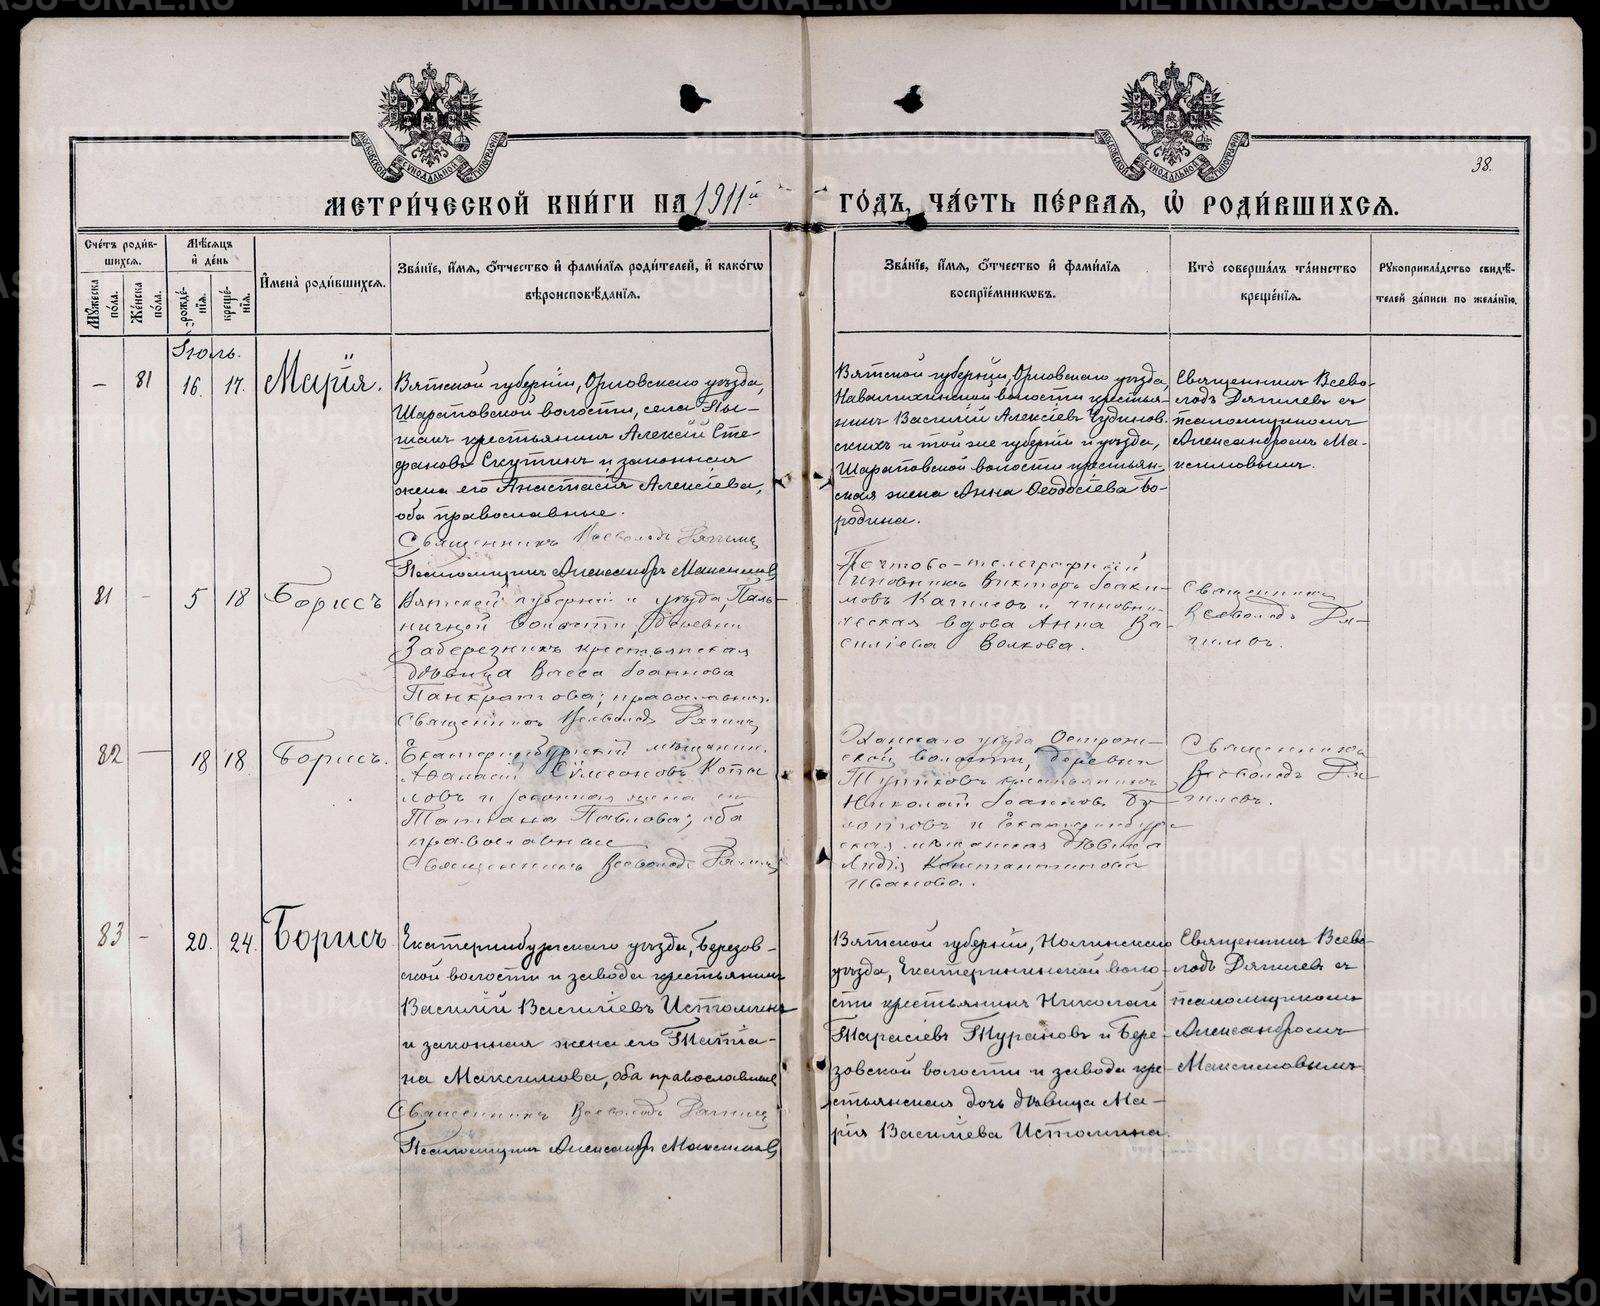 38.
МЕТРИ́ЧЕСКОЙ КНИ́ГИ НА 1911й ГО́ДЪ, ЧА́СТЬ ПЕ́РВАЯ, Ѡ РОДИ́ВШИХСЯ.
Сче́тъ роди́в-
шихся.
Мꙋ́жеска по́ла.
Же́нска по́ла.
Мѣ́сяцъ и де́нь
рожде́-
нїя.
креще́-
нїя.
Имена̀ роди́вшихся.
Зва́нїе, и́мя, ѻ́тчество и фами́лїя роди́телей, и како́гѡ
вѣроисповѣ́данїя.
Зва́нїе, и́мя, ѻ́тчество и фами́лїя
воспрїе́мниковъ.
Кто̀ соверша́лъ та́инство
креще́нїя.
Рꙋкоприкла́дство свидѣ́-
телей за́писи по жела́нїю.
Іюль.
— 81 16. 17. Марія.
Вятской губерніи, Орловскаго уѣзда,
Шараповской волости, села Пы-
крестьянинъ Алексій Сте-
фановъ Скутинъ и законная
жена его Анастасія Алексіева,
оба православные.
Священникъ Всеволодъ
Псаломщикъ Александръ Максимовъ
Вятской губерніи, Орловскаго уѣзда,
волости крестья-
нинъ Василій Алексіевъ Чудинов-
скихъ и той же губерніи и уѣзда,
Шараповской волости крестьян-
ская жена Анна Ѳеодосіева Бо-
родина.
Священникъ Всево-
лодъ съ
псаломщикомъ
Александромъ Ма-
ксимовымъ.
81 - 5 18 Борисъ
Вятской губерніи и уѣзда,
волости, деревни
крестьянская
дѣвица Васса Іоаннова
Панкратова; православная.
Священникъ Всеволодъ
Почтово-телеграфный
чиновникъ Викторъ Іоаки-
мовъ и чиновни-
ческая вдова Анна Ва-
силіева Волкова.
Священникъ
Всеволодъ
82 — 18 18. Борисъ.
Екатеринбургскій мѣщанинъ
Аѳанасій Сѵмеоновъ Копы-
ловъ и законная жена его
Татіана Павлова; оба
православные
Священникъ Всеволодъ
Оханскаго уѣзда
волости, деревни
крестьянинъ
Николай Іоанновъ
и Екатеринбург-
ская мѣщанская дѣвица
Лидія Константинова
Иванова.
Священникъ
Всеволодъ
83 - 20. 24. Борисъ
Екатеринбургскаго уѣзда, Березов-
ской волости и завода крестьянинъ
Василій Василіевъ Истоминъ
и законная жена его Татіа-
на Максимова, оба православные
Священникъ Всеволодъ
Псаломщикъ Александръ Максимовъ
Вятской губерніи, Нолинскаго
уѣзда, Екатерининской воло-
сти крестьянинъ Николай
Тарасіевъ Турановъ и Бере-
зовской волости и завода кре-
стьянская дочь дѣвица Ма-
рія Василіева Истомина.
Священникъ Всево-
лодъ съ
псаломщикомъ
Александромъ
Максимовымъ
METRIKI.GASO-URAL.RU